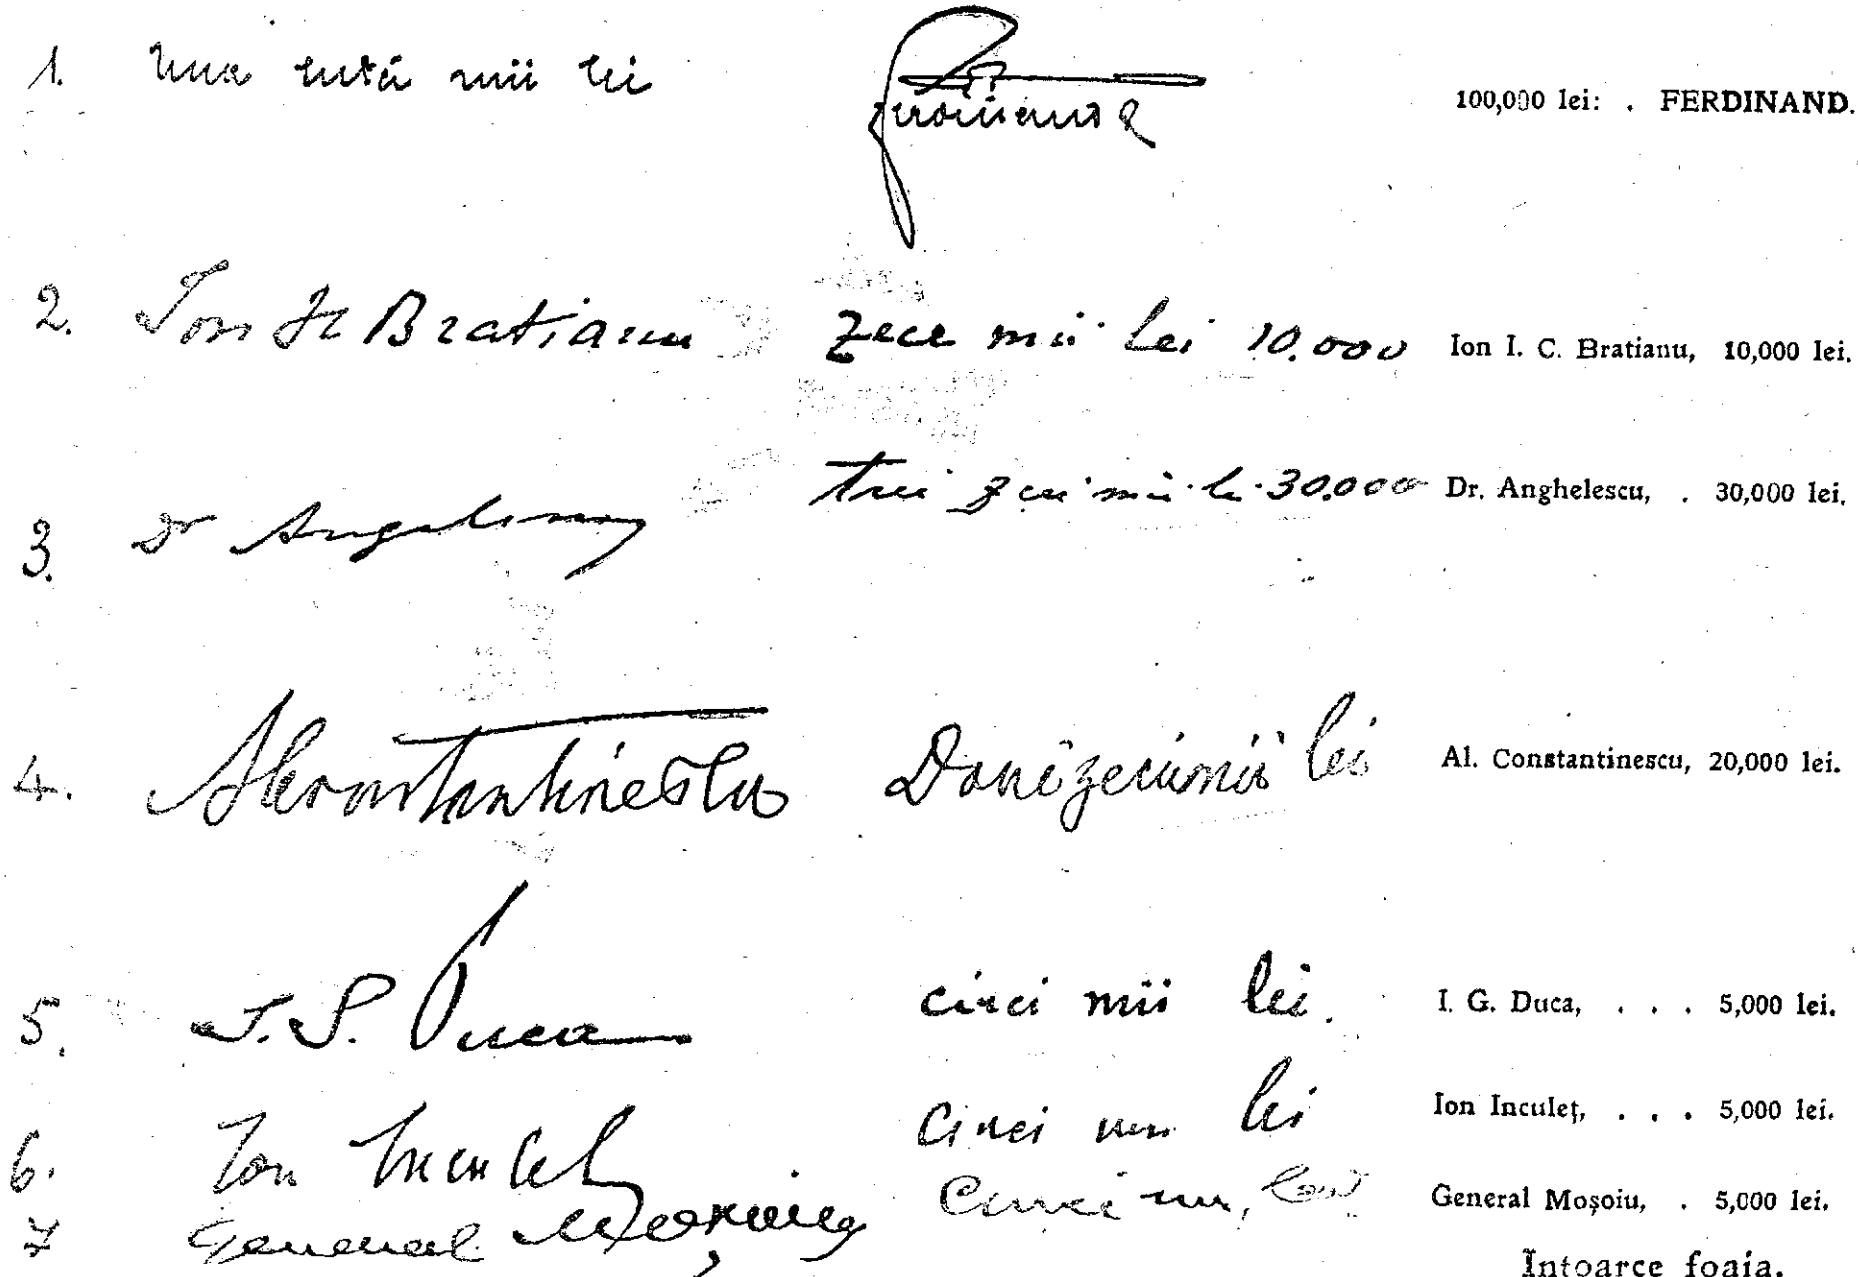 1. Una sută mii lei Ferdinand 100,000 lei: . FERDINAND.
2. Ion IC Bratianu zece mii lei 10.000 Ion I. C. Bratianu, 10,000 lei.
3. Dr Angelescu trei zeci mii lei 30.000 Dr. Anghelescu, . 30,000 lei.
4. Alconstantinescu Douăzecimii lei Al. Constantinescu, 20,000 lei.
5. I. G. Duca cinci mii lei. I. G. Duca, . . . 5,000 lei.
6. Ion Inculeț cinci mii lei Ion Inculeț, . . . 5,000 lei.
7 General Moșoiu Cinci mii lei General Moșoiu, . 5,000 lei.
Intoarce foaia.